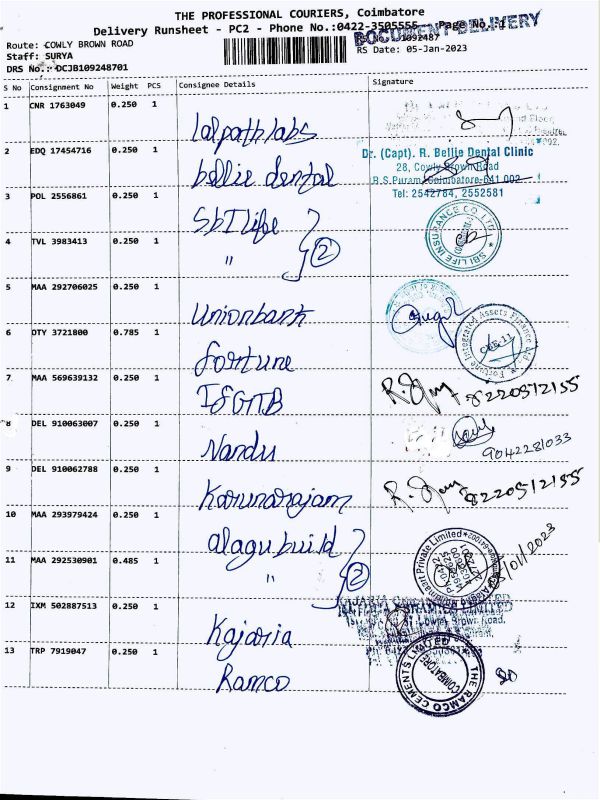 THE PROFESSIONAL COURIERS, Coimbatore
Delivery Runsheet - PC2 - Phone No.:0422-3505555 Page No.:1
DOCUMENT DELIVERY
Route: COWLY BROWN ROAD
Staff: SURYA
RS Date: 05-Jan-2023
DRS No.: DCJB109248701
S No Consignment No Weight PCS Consignee Details Signature
1 CNR 1763049 0.250 1
lalpathlabs
2 EDQ 17454716 0.250 1
Dr. (Capt). R. Bellie Dental Clinic
28, Cowly Brown Road
R.S.Puram, Coimbatore-641 002
Tel: 2542784, 2552581
bellie dental
3 POL 2556861 0.250 1
SbI life
SBI LIFE INSURANCE CO. LTD
4 TVL 3983413 0.250 1
" 2
5 MAA 292706025 0.250 1
Unionbank
6 DTY 3721800 0.785 1
Fortune Integrated Assets Finance Ltd
fortune
7 MAA 569639132 0.250 1
8220512155
8 DEL 910063007 0.250 1
9042281033
Nandu
9 DEL 910062788 0.250 1
8220512155
Karunarajam
10 MAA 293979424 0.250 1
alagu build
11 MAA 292530901 0.485 1
" 2
Private Limited
/01/2023
12 IXM 502887513 0.250 1
KAJARIA CERAMICS LIMITED
Kajaria
13 TRP 7919047 0.250 1
Ramco
THE RAMCO CEMENTS LIMITED
COIMBATORE